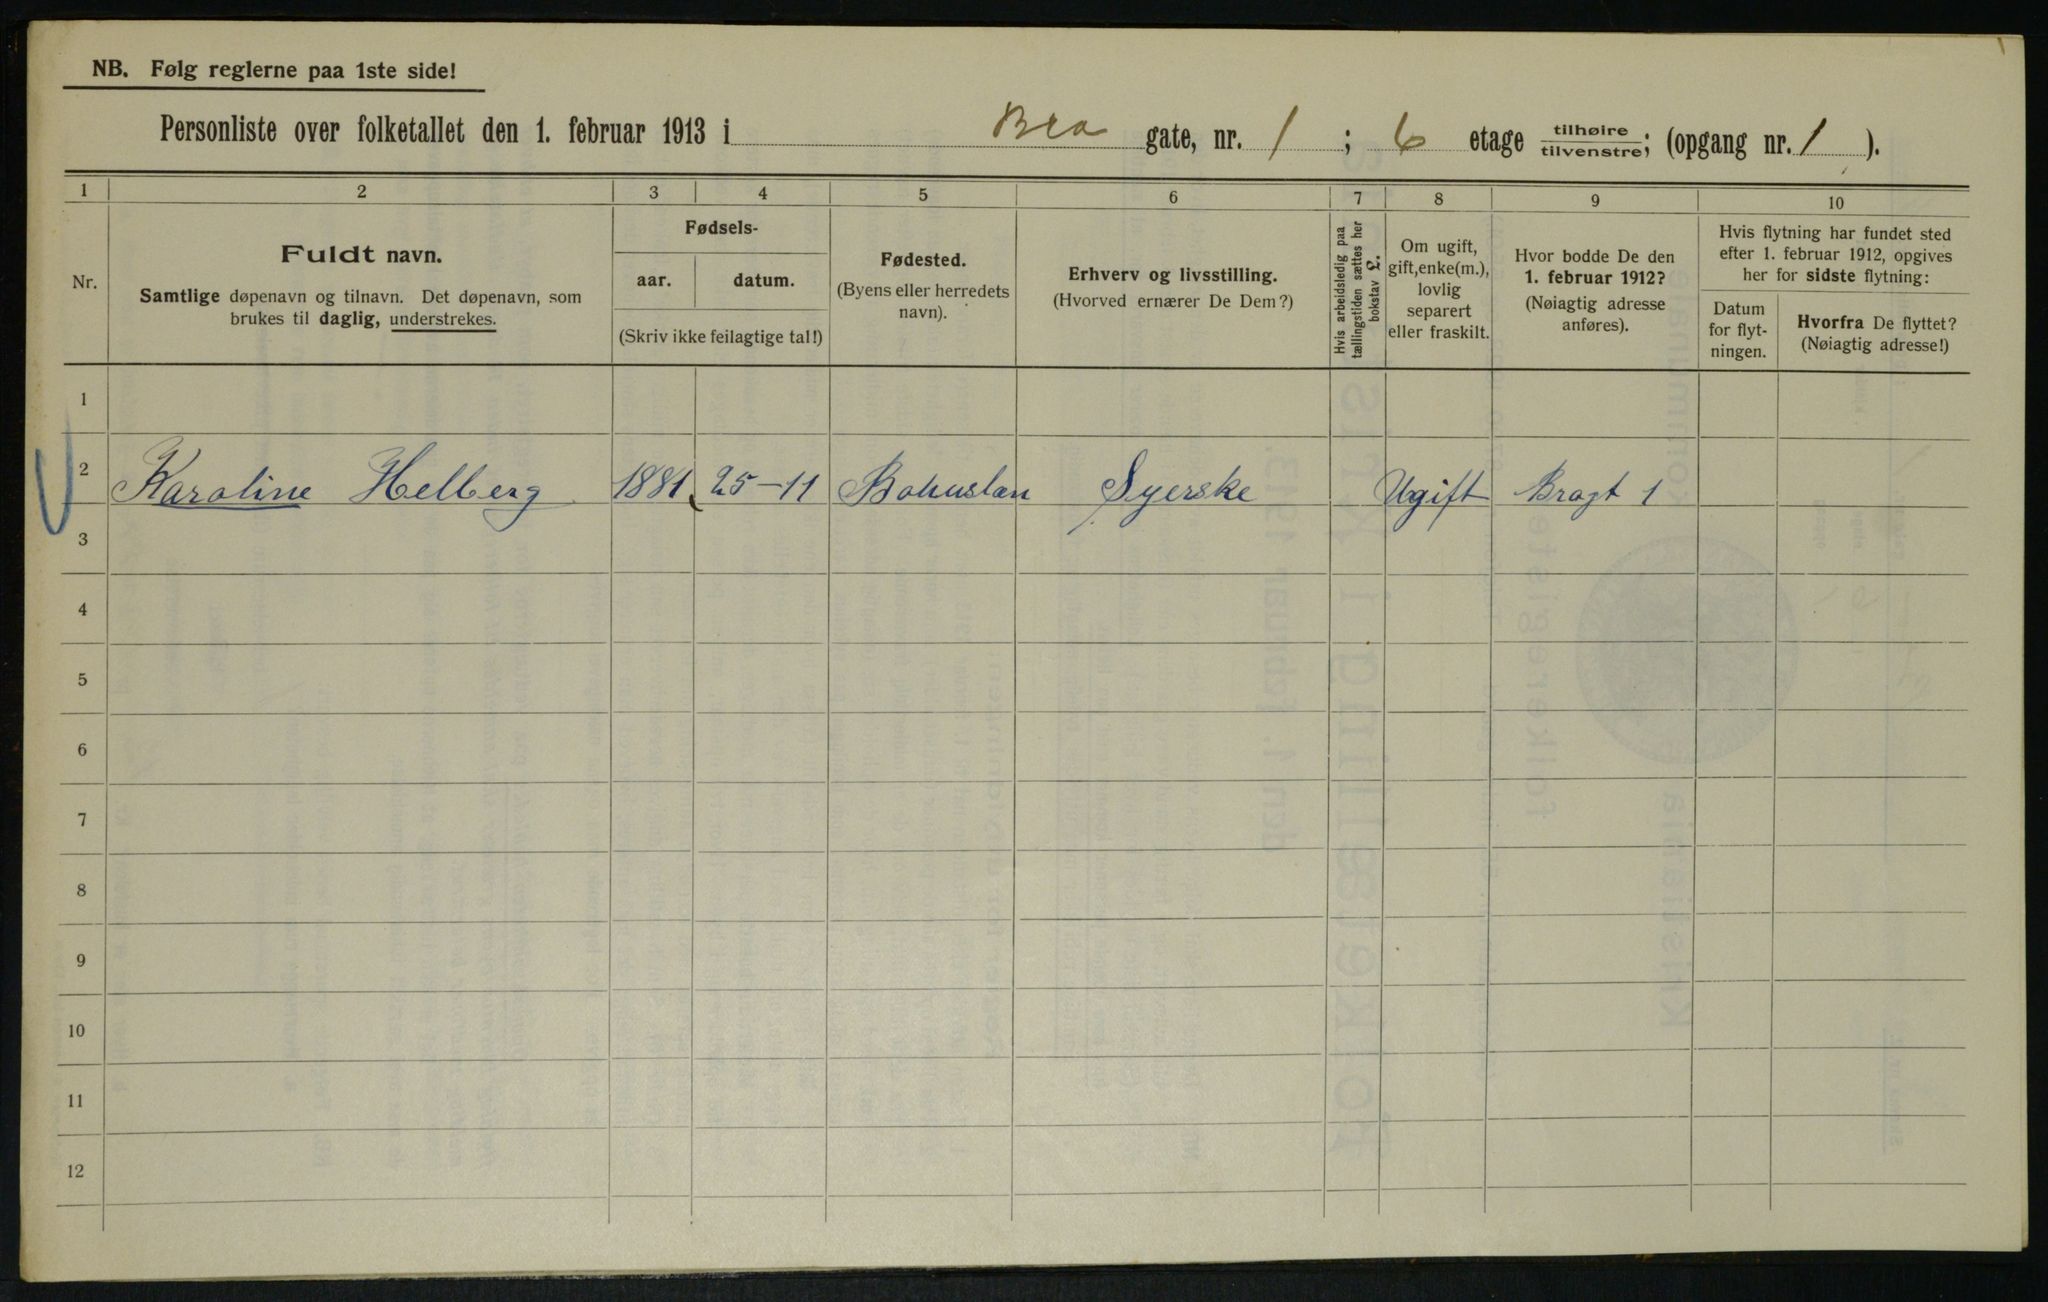 NB. Følg reglerne paa 1ste side!
Personliste over folketallet den 1. februar 1913 i Bra gate, nr. 1 ; 6 etage tilhøire tilvenstre; (opgang nr. 1 ).
1 2 3 4 5 6 7 8 9 10
Nr.
Fuldt navn.
Samtlige døpenavn og tilnavn. Det døpenavn, som
brukes til daglig, understrekes.
Fødsels-
aar. datum.
(Skriv ikke feilagtige tal!)
Fødested.
(Byens eller herredets
navn).
Erhverv og livsstilling.
(Hvorved ernærer De Dem?)
Hvis arbeidsledig paa
tællingstiden sættes her
bokstav £.
Om ugift,
gift, enke(m.),
lovlig
separert
eller fraskilt.
Hvor bodde De den
1. februar 1912?
(Nøiagtig adresse
anføres).
Hvis flytning har fundet sted
efter 1. februar 1912, opgives
her for sidste flytning:
Datum
for flyt-
ningen.
Hvorfra De flyttet?
(Nøiagtig adresse!)
1
2 Karoline Helberg 1881 25-11 Bohuslen Syerske Ugift Bragt 1
3
4
5
6
7
8
9
10
11
12